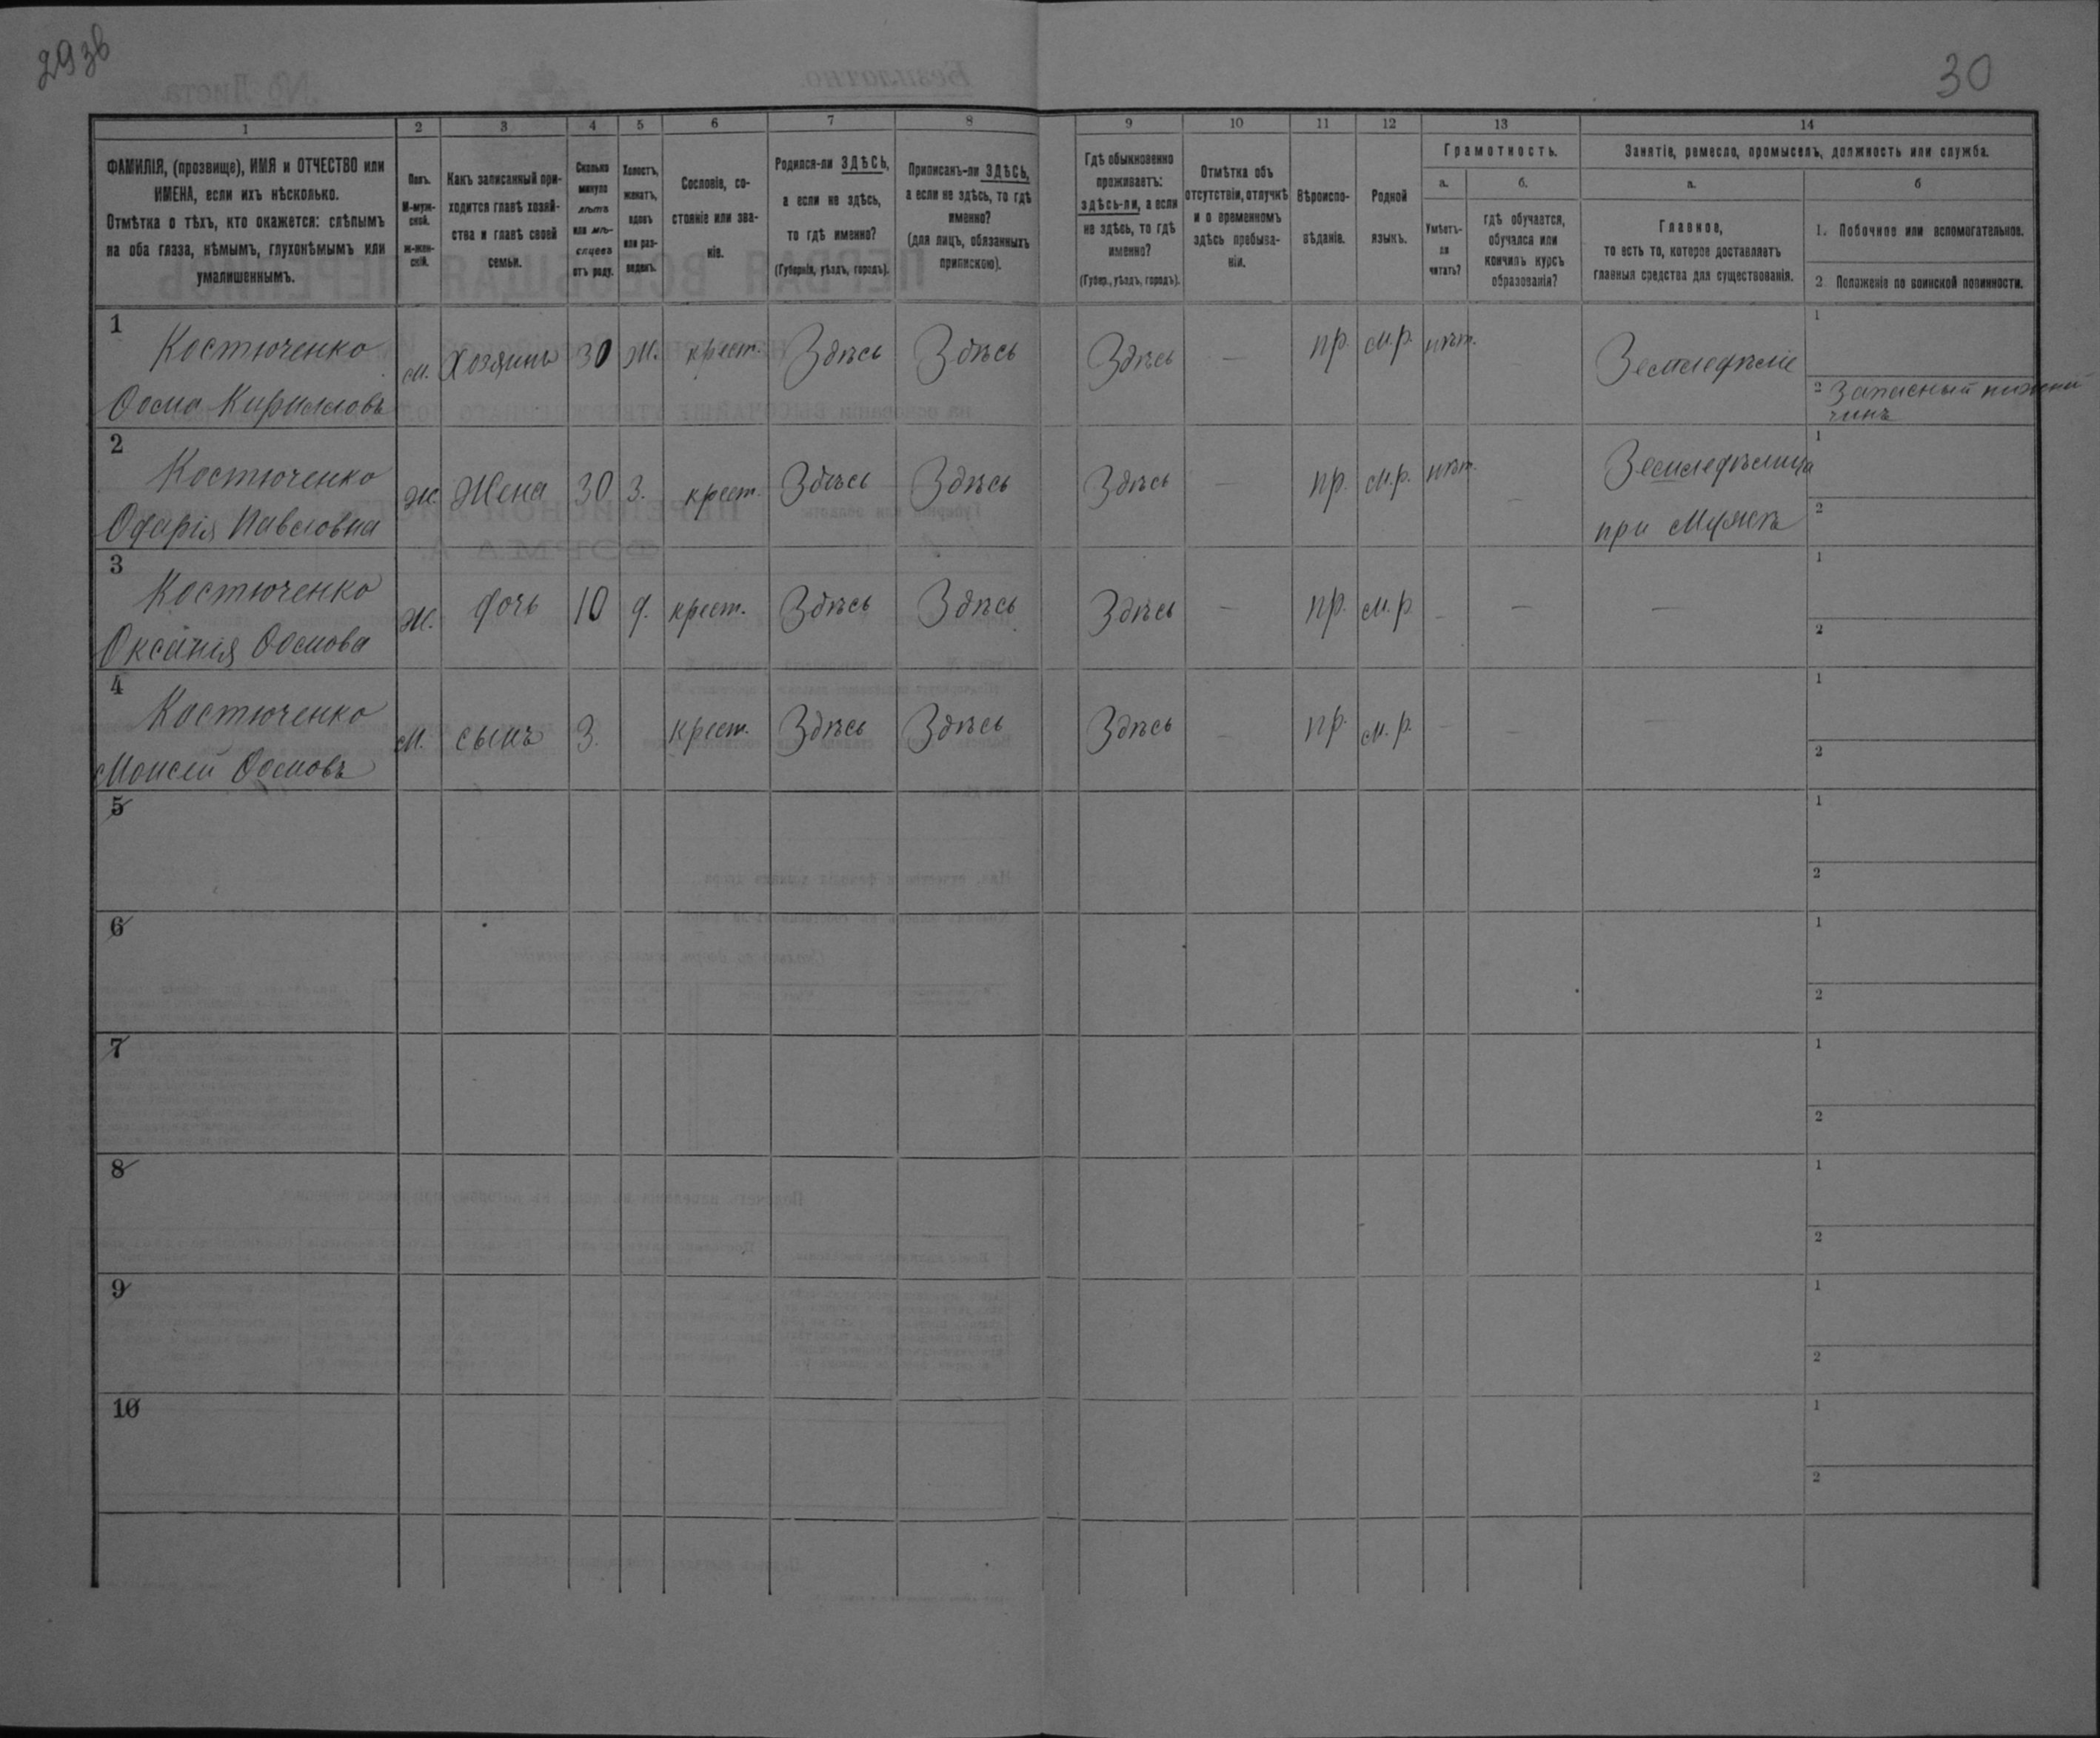 29 зв
30
1 2 3 4 5 6 7 8 9 10 11 12 13 14
ФАМИЛІЯ, (прозвище), ИМЯ и ОТЧЕСТВО или
ИМЕНА, если ихъ нѣсколько.
Отмѣтка о тѣхъ, кто окажется: слѣпымъ
на оба глаза, нѣмымъ, глухонѣмымъ или
умалишеннымъ.
Полъ.
М-муж-
ской.
ж-жен-
скій.
Какъ записанный при-
ходится главѣ хозяй-
ства и главѣ своей
семьи.
Сколько
минуло
лѣтъ
или мѣ-
сяцевъ
отъ роду.
Холостъ,
женатъ,
вдовъ
или раз-
веденъ.
Сословіе, со-
стояніе или зва-
ніе.
Родился-ли ЗДѢСЬ,
а если не здѣсь,
то гдѣ именно?
(Губернія, уѣздъ, городъ).
Приписанъ-ли ЗДѢСЬ,
а если не здѣсь, то гдѣ
именно?
(для лицъ, обязанныхъ
припискою).
Гдѣ обыкновенно
проживаетъ:
здѣсь-ли, а если
не здѣсь, то гдѣ
именно?
(Губер., уѣздъ, городъ).
Отмѣтка объ
отсутствіи, отлучкѣ
и о временномъ
здѣсь пребыва-
ніи.
Вѣроиспо-
вѣданіе.
Родной
языкъ.
Грамотность.
а.
Умѣетъ-
ли
читать?
б.
гдѣ обучается,
обучался или
кончилъ курсъ
образованія?
Занятіе, ремесло, промыселъ, должность или служба.
а.
Главное,
то есть то, которое доставляетъ
главныя средства для существованія.
б
1. Побочное или вспомогательное.
2 Положеніе по воинской повинности.
1
Костюченко
Ѳома Кирилловъ
м. Хозяинъ 30 ж. крест. Здѣсь Здѣсь Здѣсь — пр. м.р. нѣтъ. Земледѣліе
1
2 Запасный нижній
чинъ
2
Костюченко
Павловна
ж. Жена 30 З. крест. Здѣсь Здѣсь Здѣсь — пр. м.р. нѣтъ. — Земледѣлица
при Мужѣ
1
2
3
Костюченко
Ѳомова
ж. дочь 10 д. крест. Здѣсь Здѣсь Здѣсь — пр. м.р. — — —
1
2
4
Костюченко
Моисей Ѳомовъ
м. сынъ 3. крест. Здѣсь Здѣсь Здѣсь — пр. м.р. — — —
1
2
5
1
2
6
1
2
7
1
2
8
1
2
9
1
2
10
1
2